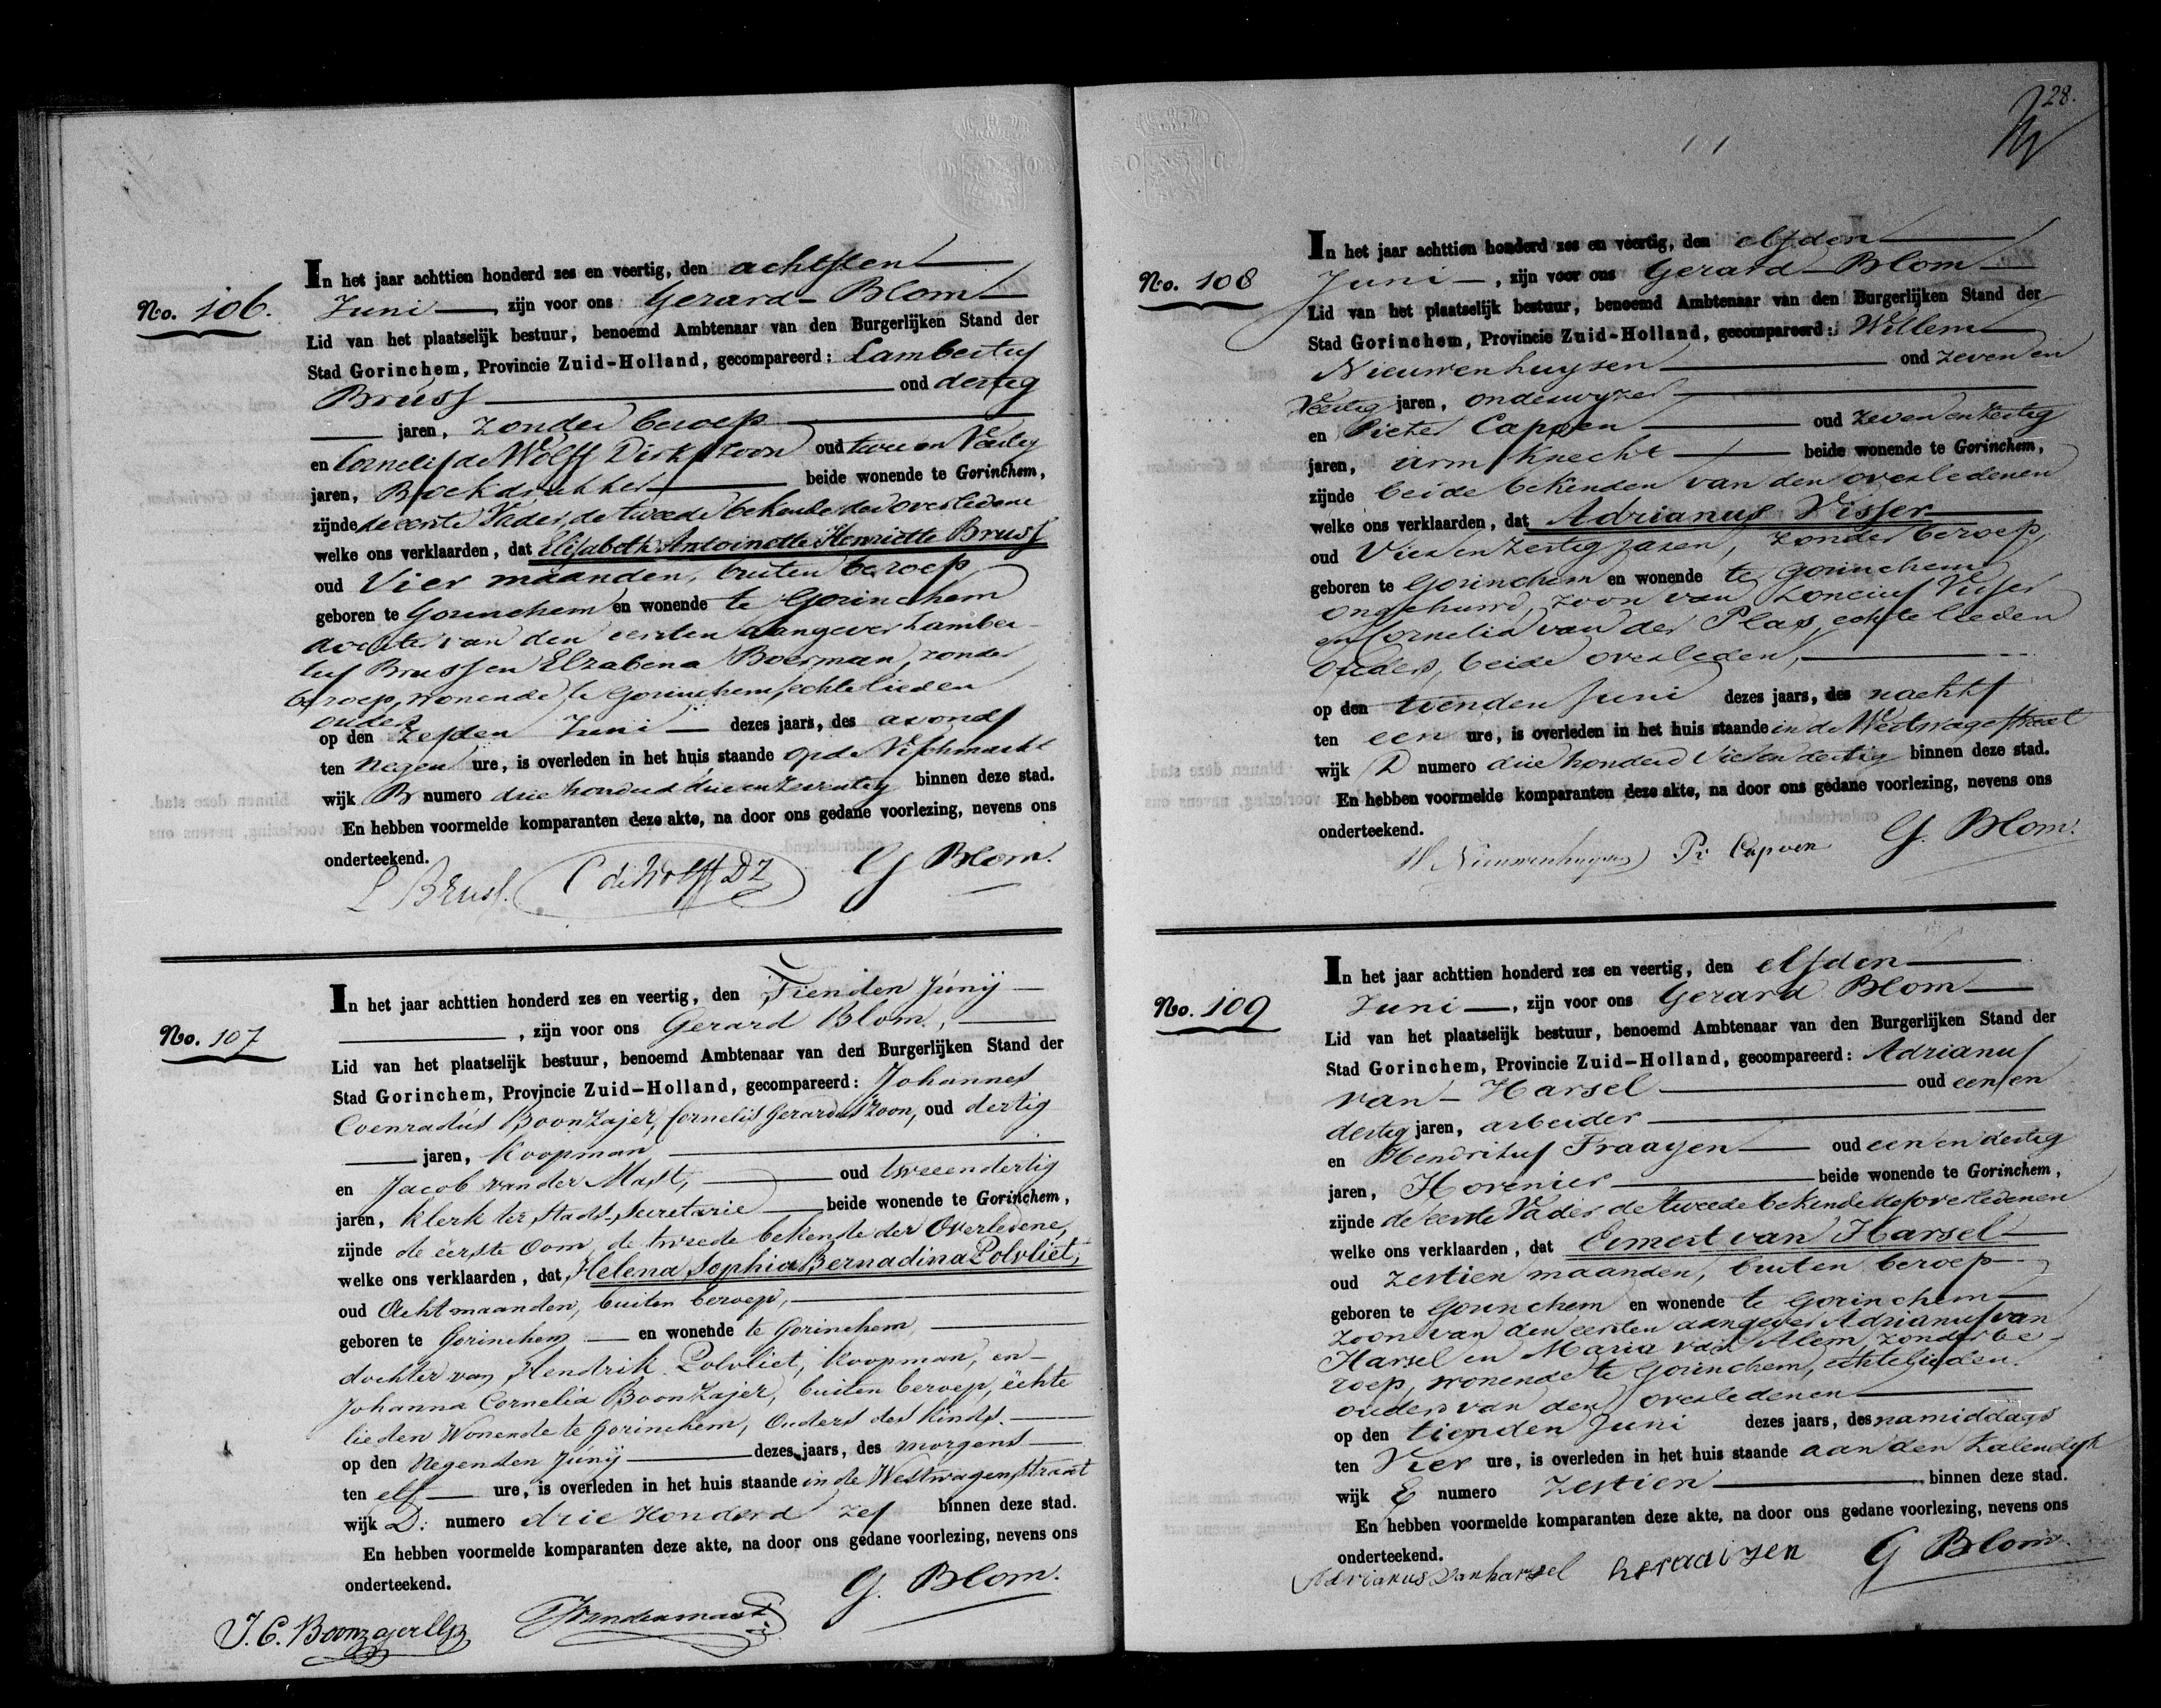 No. 106.
In het jaar achttien honderd zes en veertig, den achtsten
Juni, zijn voor ons Gerard Blom
Lid van het plaatselijk bestuur, benoemd Ambtenaar van den Burgerlijken Stand der
Stad Gorinchem, Provincie Zuid-Holland, gecompareerd: Lambertus
Bruss oud dertig
jaren, zonder beroep
en Cornelis de Wolff Dirkszoon oud twee en Veertig
jaren, Boekdrukker beide wonende te Gorinchem,
zijnde de eerste Vader, de tweede bekende der overledene
welke ons verklaarden, dat Elisabeth Antoinette Henriette Bruss
oud Vier maanden, buiten beroep
geboren te Gorinchem en wonende te Gorinchem
dochter van den eersten aangever Lamber-
tus Bruss en Elzabena Boerman, zonder
beroep, wonende te Gorinchem, echtelieden
ouders
op den zesden Juni dezes jaars, des avonds
ten negen ure, is overleden in het huis staande op de Vischmarkt
wijk B numero drie honderd drie en zeventig binnen deze stad.
En hebben voormelde komparanten deze akte, na door ons gedane voorlezing, nevens ons
onderteekend.
L Bruss. C de Wolff DZ G Blom.
No. 107
In het jaar achttien honderd zes en veertig, den Tienden Junij
, zijn voor ons Gerard Blom,
Lid van het plaatselijk bestuur, benoemd Ambtenaar van den Burgerlijken Stand der
Stad Gorinchem, Provincie Zuid-Holland, gecompareerd: Johannes
Coenradus Boonzajer, Cornelis Gerarduszoon, oud dertig
jaren, Koopman
en Jacob van der Mast, oud tweeendertig
jaren, klerk ter Stads-secretarie beide wonende te Gorinchem,
zijnde de eerste Oom, de tweede bekende der Overledene,
welke ons verklaarden, dat Helena Sophia Bernadina Polvliet,
oud Acht maanden, buiten beroep,
geboren te Gorinchem en wonende te Gorinchem,
dochter van Hendrik Polvliet, Koopman, en
Johanna Cornelia Boonzajer, buiten beroep, echte
lieden Wonende te Gorinchem, Ouders des Kinds.
op den Negenden Junij dezes jaars, des morgens
ten elf ure, is overleden in het huis staande in de Westwagenstraat
wijk D: numero drie Honderd zes binnen deze stad.
En hebben voormelde komparanten deze akte, na door ons gedane voorlezing, nevens ons
onderteekend.
G. Blom.
J. C. Boonzajer CGz JvanderMast
28.
No. 108
In het jaar achttien honderd zes en veertig, den elfden
Juni, zijn voor ons Gerard Blom
Lid van het plaatselijk bestuur, benoemd Ambtenaar van den Burgerlijken Stand der
Stad Gorinchem, Provincie Zuid-Holland, gecompareerd: Willem
Nieuwenhuysen oud zeven en
Veertig jaren, onderwyzer
en Pieter Capoen oud zeven en zestig
jaren, armknecht beide wonende te Gorinchem,
zijnde beide bekenden van den overledenen
welke ons verklaarden, dat Adrianus Visser
oud Vier en zestig jaren, zonder beroep,
geboren te Gorinchem en wonende te Gorinchem
ongehuwd, zoon van Loncius Visser
en Cornelia van der Plas, echtelieden
ouders, beide overleden,
op den tienden Juni dezes jaars, des nachts
ten een ure, is overleden in het huis staande in de Westwagestraat
wijk D numero drie honderd Vier en dertig binnen deze stad.
En hebben voormelde komparanten deze akte, na door ons gedane voorlezing, nevens ons
onderteekend.
W Nieuwenhuysen Pr Capoen G. Blom.
No. 109
In het jaar achttien honderd zes en veertig, den elfden
Juni, zijn voor ons Gerard Blom
Lid van het plaatselijk bestuur, benoemd Ambtenaar van den Burgerlijken Stand der
Stad Gorinchem, Provincie Zuid-Holland, gecompareerd: Adrianus
van Harsel oud een en
dertig jaren, arbeider
en Hendrikus Fraayen oud een en dertig
jaren, Hovenier beide wonende te Gorinchem,
zijnde de eerste Vader de tweede bekende des overledenen
welke ons verklaarden, dat Eimert van Harsel
oud zestien maanden, buiten beroep
geboren te Gorinchem en wonende te Gorinchem
zoon van den eersten aangever Adrianus van
Harsel en Maria van Alem, zonder be-
roep, wonende te Gorinchem, echtelieden.
ouders van den overledenen
op den tienden Juni dezes jaars, des namiddags
ten Vier ure, is overleden in het huis staande aan den Kalendijk
wijk E numero zestien binnen deze stad.
En hebben voormelde komparanten deze akte, na door ons gedane voorlezing, nevens ons
onderteekend.
Adrianus van harsel G Blom.